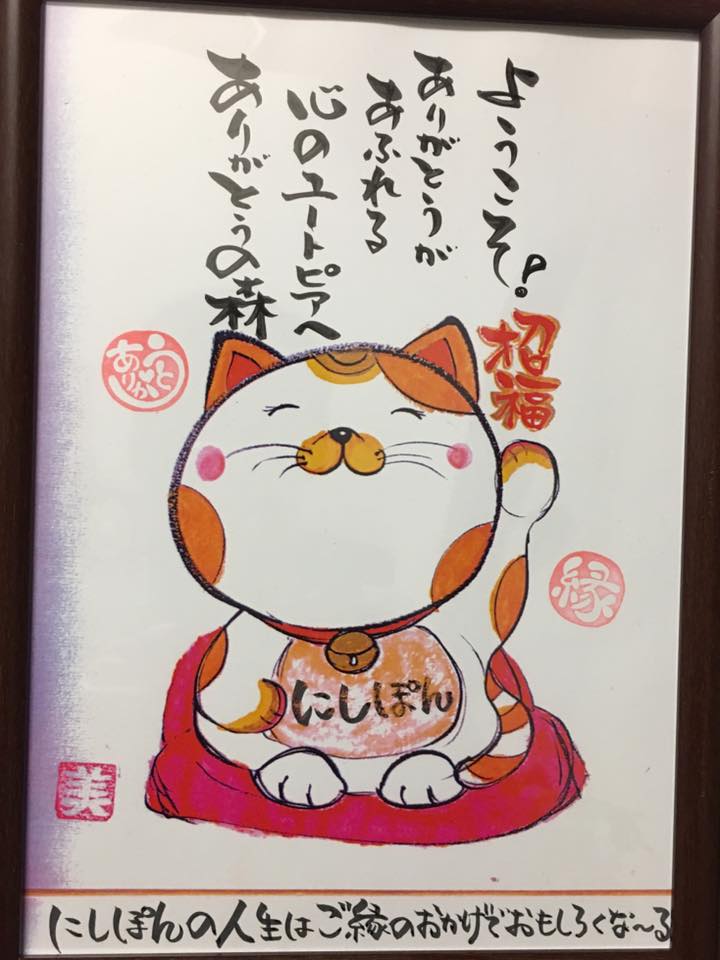 ようこそ!
ありがとうが
あふれる
心のユートピアへ
ありがとうの森
招福
ありがとう
縁
にしぽん
美
にしぽんの人生はご縁のおかげでおもしろくな〜る